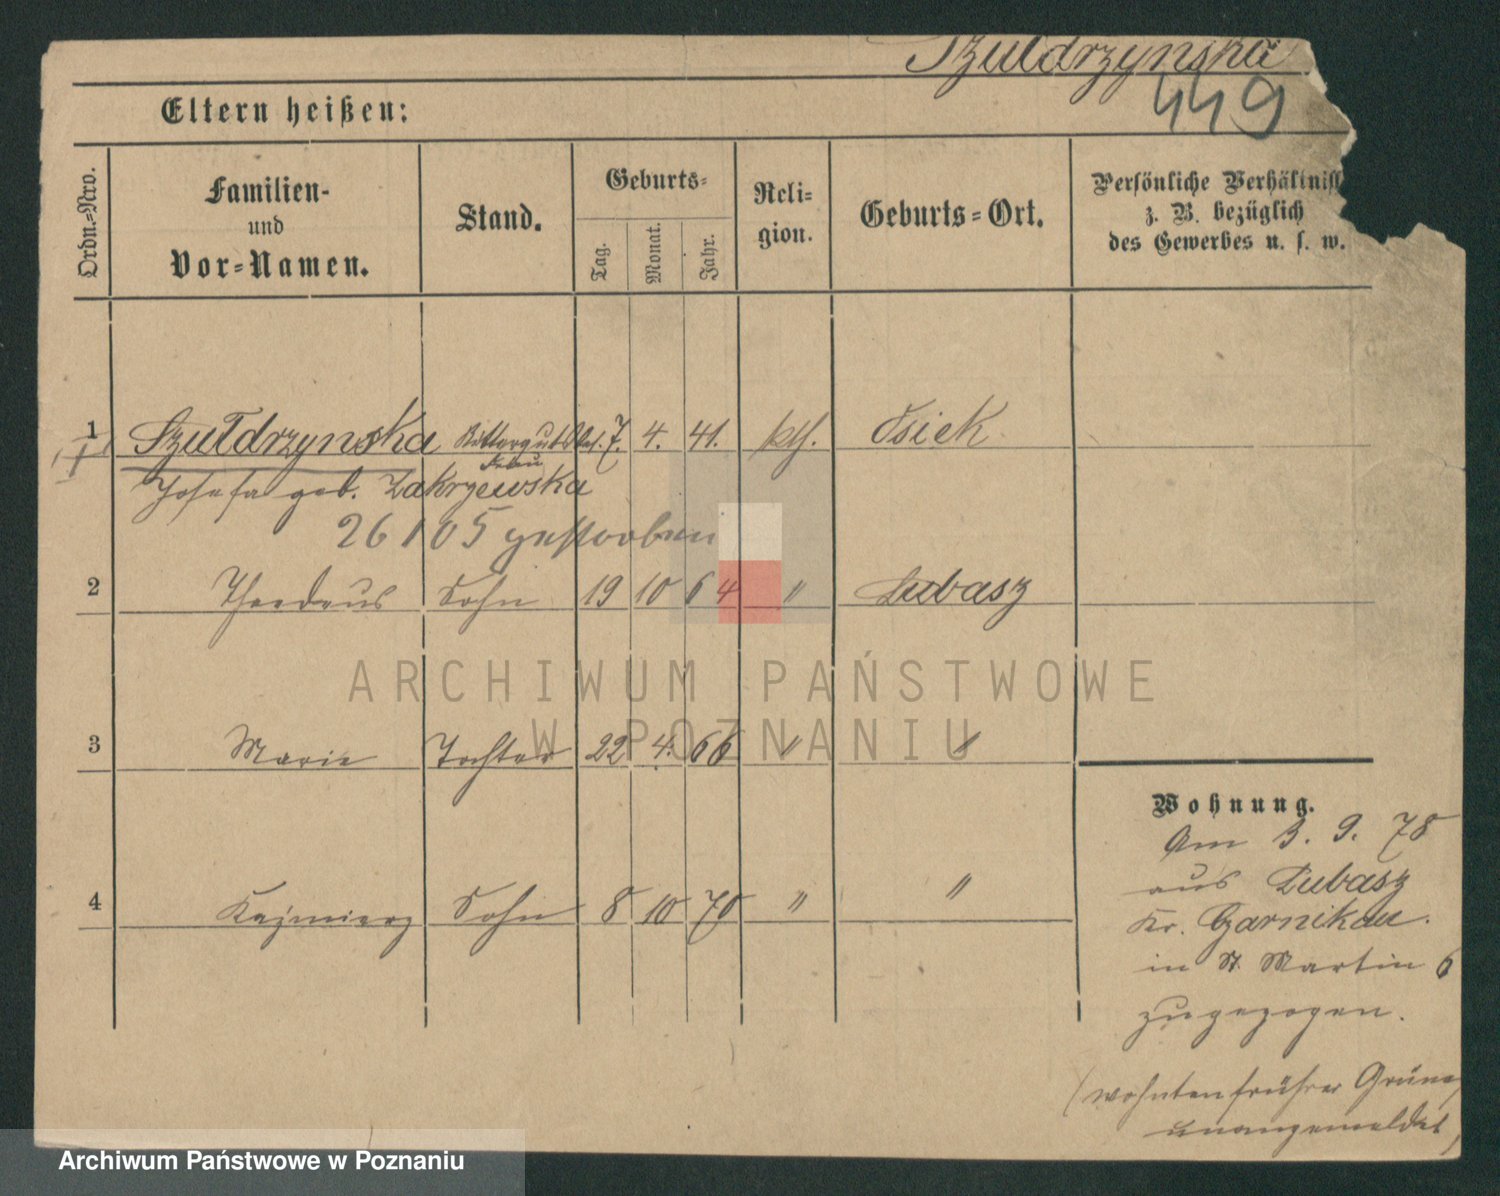 Szułdrzynska
449
Eltern heißen:
Ordn.=Nro.
Familien-
und
Vor=Namen.
Stand.
Geburts=
Tag.
Monat.
Jahr.
Reli-
gion.
Geburts=Ort.
Persönliche Verhältniss
z. B. bezüglich
des Gewerbes u. s. w.
1 Szułdrzynska Rittergutsbes. 7. 4. 41. kth. Osiek
1 Frau
Josefa geb. Zakrzewska
26 1 05 gestorben
2 Theodeus Sohn 19 10 64 " Lubasz
3 Marie Tochter 22 4. 66 " "
4 Kazimierz Sohn 8 10 70 " "
Wohnung.
Am 3. 9. 78
aus Lubasz
Kr. Czarnikau.
in St. Martin 6
zugezogen.
(wohnten früher Grüne
unangemeldet)
ARCHIWUM PAŃSTWOWE
W POZNANIU
Archiwum Państwowe w Poznaniu